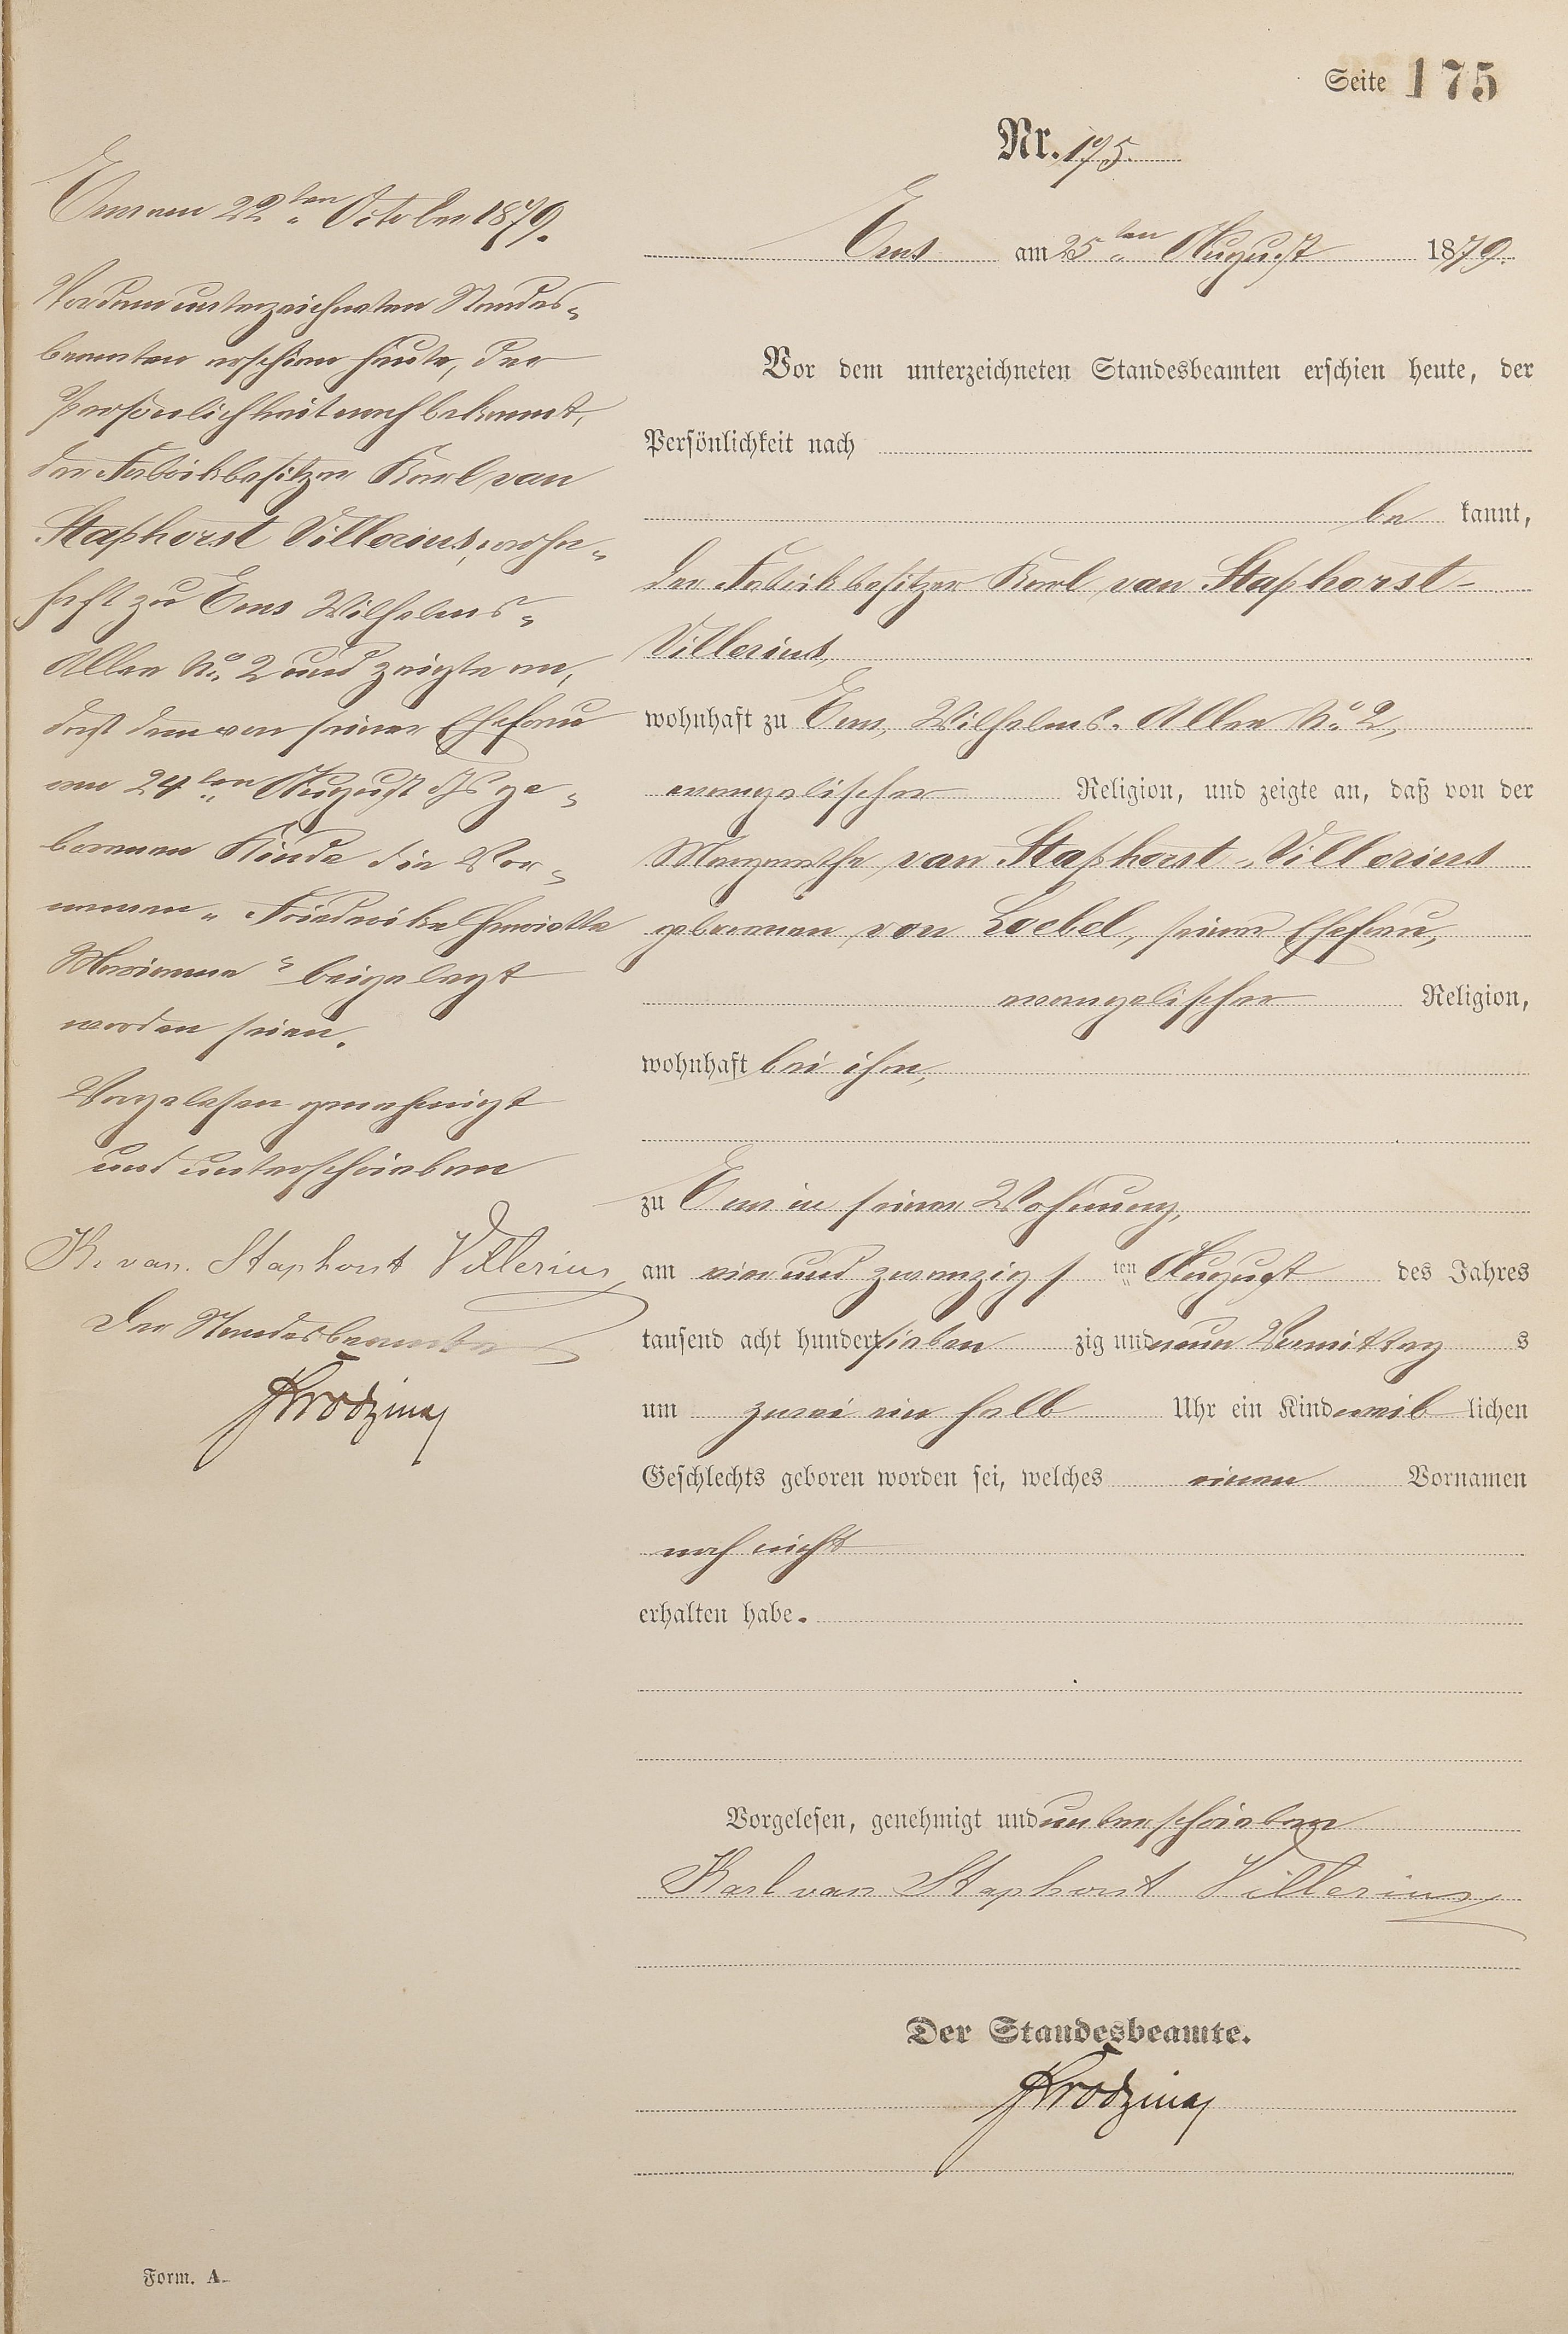 Seite 175
Nr. 175.
Ems am 25ten August 1879.
Vor dem unterzeichneten Standesbeamten erschien heute, der
Persönlichkeit nach
be kannt,
der Fabrikbesitzer Karl van Staphorst-
Villerius,
wohnhaft zu Ems, Wilhelms-Allee No. 2,
evangelischer Religion, und zeigte an, daß von der
Margarethe van Staphorst-Villerius
geborenen von Loebel, seiner Ehefrau,
evangelischer Religion,
wohnhaft bei ihm,
zu Ems in seiner Wohnung,
am vier und zwanzigsten August des Jahres
tausend acht hundert sieben zig und neun Vormittags
um zwei ein halb Uhr ein Kind weib lichen
Geschlechts geboren worden sei, welches einen Vornamen
noch nicht
erhalten habe.
Vorgelesen, genehmigt und unterschrieben
Karl van Staphorst Villerius
Der Standesbeamte.
Ems am 22ten October 1879.
Vor dem unterzeichneten Standes-
beamten erschien heute, der
Persönlichkeit nach bekannt,
der Fabrikbesitzer Karl van
Staphorst Villerius, wohn-
haft zu Ems Wilhelms-
Allee No. 2 und zeigte an,
daß dem von seiner Ehefrau
am 24ten August ds Js ge-
borenen Kinde die Vor-
namen „Friederike Henriette
Marianne" beigelegt
worden seien.
Vorgelesen genehmigt
und unterschrieben
K. van Staphorst Villerius
Der Standesbeamte
Form. A.